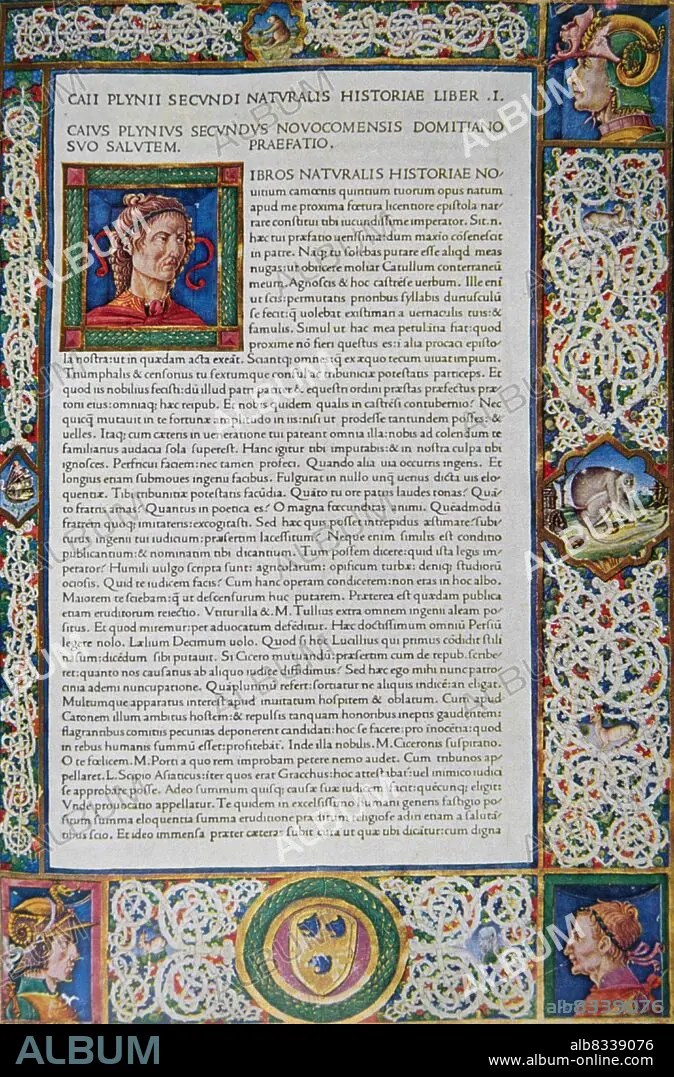 CAII PLYNII SECVNDI NATVRALIS HISTORIAE LIBER .I.
CAIVS PLYNIVS SECVNDVS NOVOCOMENSIS DOMITIANO
SVO SALVTEM. PRAEFATIO.
IBROS NATVRALIS HISTORIAE NO
uitium camœnis quiritium tuorum opus natum
apud me proxima fœtura licentiore epistola nar
rare constitui tibi iucundissime imperator. Sit.n.
hæc tui præfatio uerissima: dum maxio cōsenescit
in patre. Nāq; tu solebas putare esse aliqd meas
nugas: ut obiicere moliar Catullum conterraneū
meum. Agnoscis & hoc castrēse uerbum. Ille enī
ut scis: permutatis prioribus syllabis duriusculū
se fecit: q̄ uolebat existimari a uernaculis tuis: &
famulis. Simul ut hac mea petulātia fiat: quod
proxime nō fieri questus es: ī alia procaci episto
la nostra: ut in quædam acta exeāt. Sciantq; omnes: q̄ ex æquo tecum uiuat impium.
Triumphalis & censorius tu sextumque consul ac tribuniciæ potestatis particeps. Et
quod iis nobilius fecisti: dū illud patri pariter & equestri ordini præstas præfectus præ
torii eius: omniaq; hæc reipub. Et nobis quidem qualis in castrēsi contubernio? Nec
quicq̄ mutauit in te fortunæ amplitudo in iis: nisi ut prodesse tantundem posses: &
uelles. Itaq; cum cæteris in ueneratione tui pateant omnia illa: nobis ad colendum te
familiarius audacia sola superest. Hanc igitur tibi imputabis: & in nostra culpa tibi
ignosces. Perfricui faciem: nec tamen profeci. Quando alia uia occurris ingens. Et
longius etiam submoues ingenii facibus. Fulgurat in nullo unq̄ uerius dicta uis elo
quentiæ. Tibi tribunitiæ potestatis facūdia. Quāto tu ore patris laudes tonas? Quā
to fratris amas? Quantus in poetica es? O magna fœcunditas animi. Quēadmodū
fratrem quoq; imitareris: excogitasti. Sed hæc quis possit intrepidus æstimare: subi
turus ingenii tui iudicium: præsertim lacessitum? Neque enim similis est conditio
publicantium: & nominatim tibi dicantium. Tum possem dicere: quid ista legis im
perator? Humili uulgo scripta sunt: agricolarum: opificum turbæ: deniq; studiorū
ociosis. Quid te iudicem facis? Cum hanc operam condicerem: non eras in hoc albo.
Maiorem te sciebam: q̄ ut descensurum huc putarem. Præterea est quædam publica
etiam eruditorum reiectio. Vtitur illa &. M. Tullius extra omnem ingenii aleam po
situs. Et quod miremur: per aduocatum defēditur. Hæc doctissimum omniū Persiū
legere nolo. Lælium Decimum uolo. Quod si hoc Lucillius qui primus cōdidit stili
nasum: dicēdum sibi putauit. Si Cicero mutuandū: præsertim cum de repub. scribe
ret: quanto nos causatius ab aliquo iudice diffidimus? Sed hæc ego mihi nunc patro
cinia ademi nuncupatione. Quāplurimū refert: sortiatur ne aliquis iudicē: an eligat.
Multumque apparatus interest apud inuitatum hospitem & oblatum. Cum apud
Catonem illum ambitus hostem: & repulsis tanquam honoribus ineptis gaudentem:
flagrantibus comitiis pecunias deponerent candidati: hoc se facere: pro inocētia: quod
in rebus humanis summū esset: profitebāt. Inde illa nobilis. M. Ciceronis suspiratio.
O te fœlicem. M. Porti a quo rem improbam petere nemo audet. Cum tribunos ap
pellaret. L. Scipio Asiaticus: iter quos erat Gracchus: hoc attestabat: uel inimico iudici
se approbari posse. Adeo summum quisq; causæ suæ iudicem facit: quēcunq; eligit:
Vnde prouocatio appellatur. Te quidem in excelsissimo humani generis fastigio po
situm summa eloquentia summa eruditione præditum: religiose adiri etiam a saluta
tibus scio. Et ideo immensa præter cæteras subit cura ut quæ tibi dicātur: cum digna
ALBUM
alb8339076
ALBUM
alb8339076
www.album-online.com